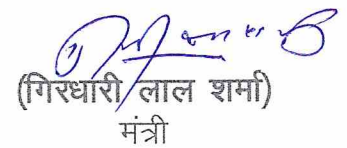 (गिरधारी लाल शर्मा)
मंत्री